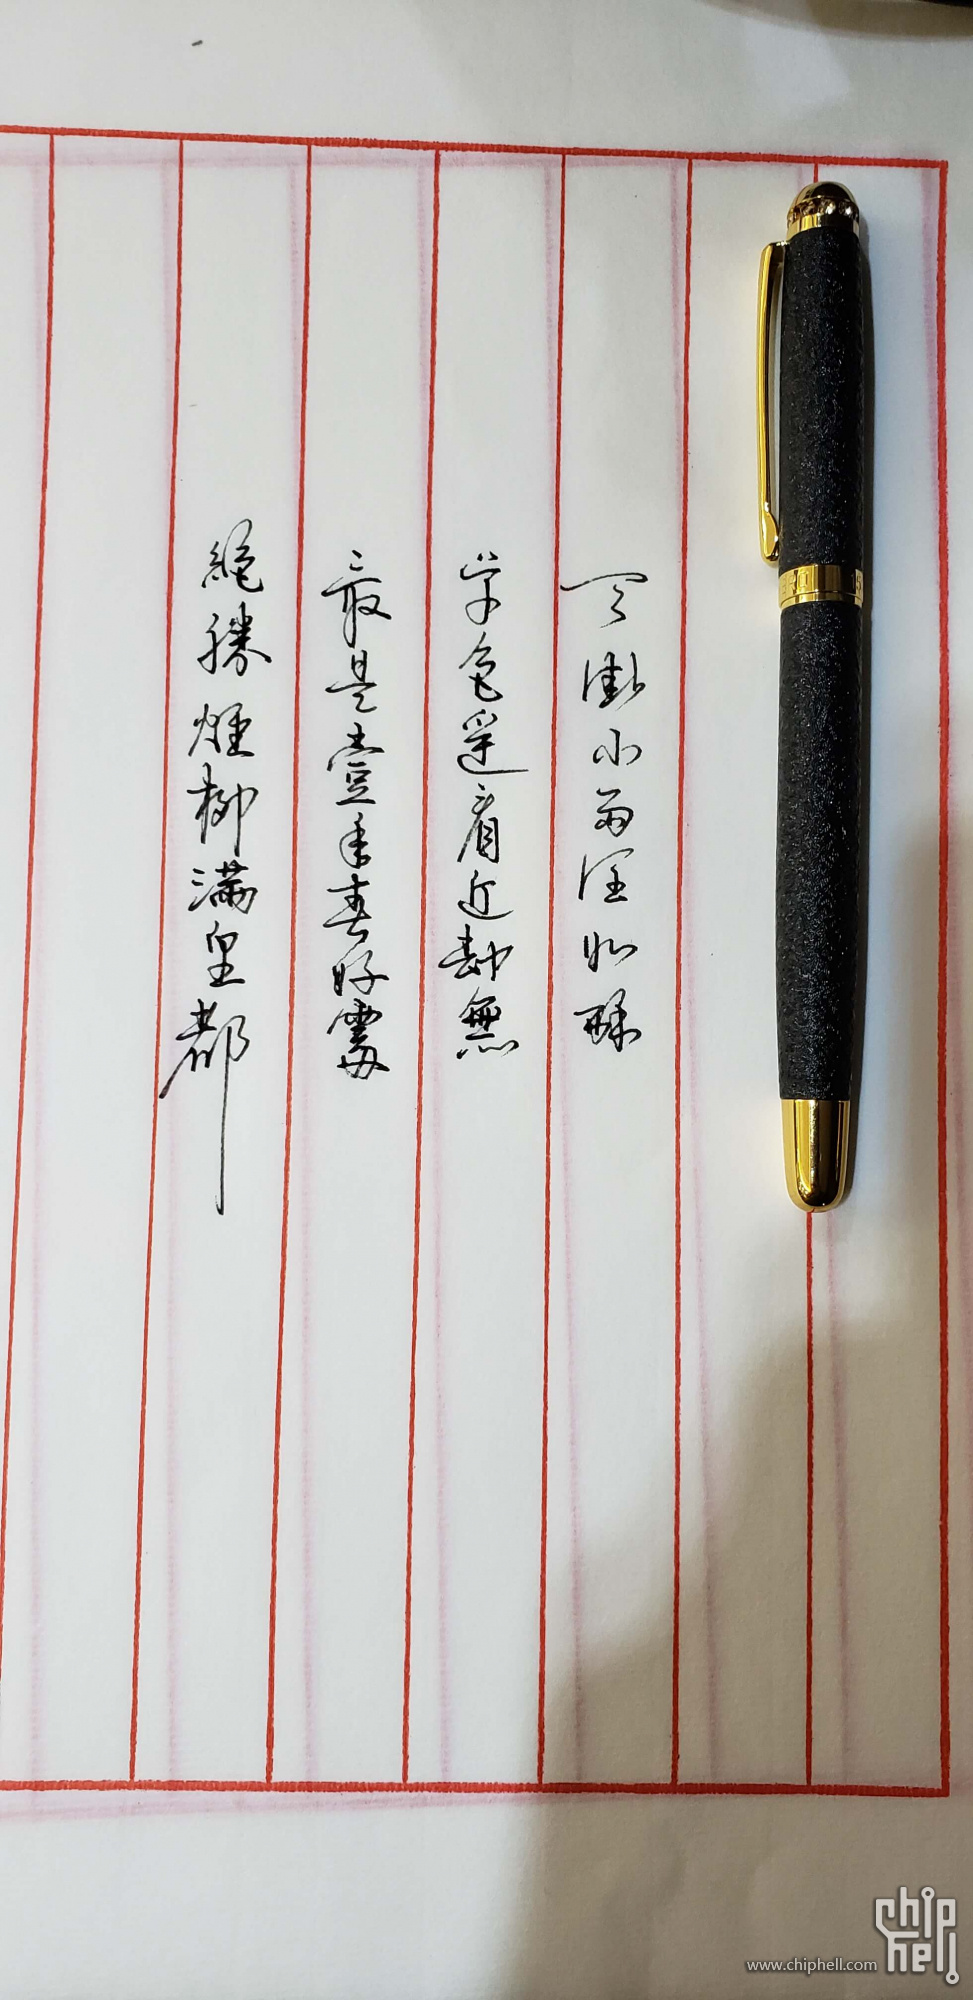 天街小雨润如酥
草色遥看近却無
最是壹年春好處
絕勝煙柳满皇都
www.chiphell.com
chip
hell